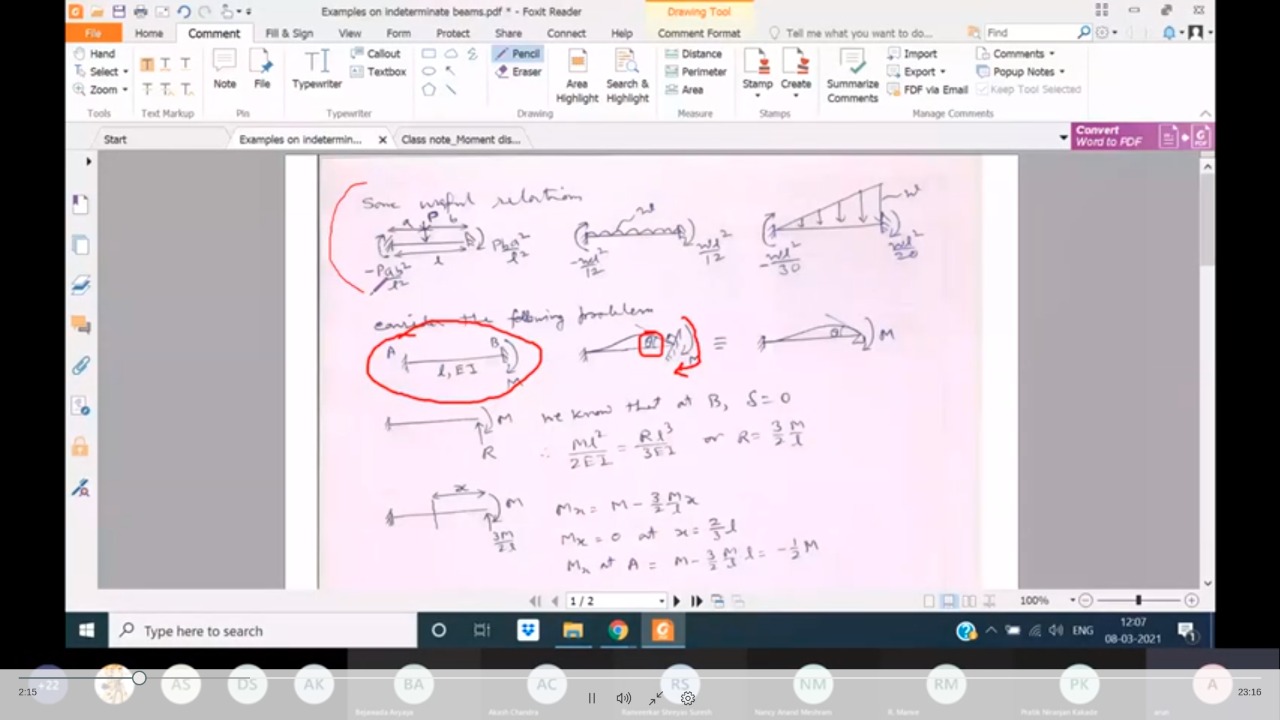 Examples on indeterminate beams.pdf * - Foxit Reader
Drawing Tool
File Home Comment Fill & Sign View Form Protect Share Connect Help Comment Format Tell me what you want to do... Find
Hand
Select
Zoom
Tools
Text Markup
Note
Pin
File
Typewriter
Callout
Textbox
Typewriter
Pencil
Eraser
Drawing
Area Highlight
Search & Highlight
Distance
Perimeter
Area
Measure
Stamp
Create
Stamps
Summarize Comments
Import
Export
FDF via Email
Comments
Popup Notes
Keep Tool Selected
Manage Comments
Start
Examples on indetermin...
Class note_Moment dis...
Convert
Word to PDF
Some useful relations
a P b
l
-Pab²/l² Pba²/l²
w
-wl²/12 wl²/12
w
-wl²/30 wl²/20
consider the following problem
A B
l, EI
M
θ
M
≡
θ
M
M
R
we know that at B, δ = 0
∴ Ml²/2EI = Rl³/3EI or R = 3/2 M/l
x
M
3M/2l
Mx = M - 3/2 M/l x
Mx = 0 at x = 2/3 l
Mx at A = M - 3/2 M/l l = -1/2 M
1 / 2
100%
Type here to search
ENG
12:07
08-03-2021
1
+22
AS
DS
AK
BA
AC
RS
NM
RM
PK
A
Bejawada Aryaya
Akash Chandra
Nancy Anand Meshram
R. Manve
Pratik Niranjan Kakade
arun
2:15
23:16